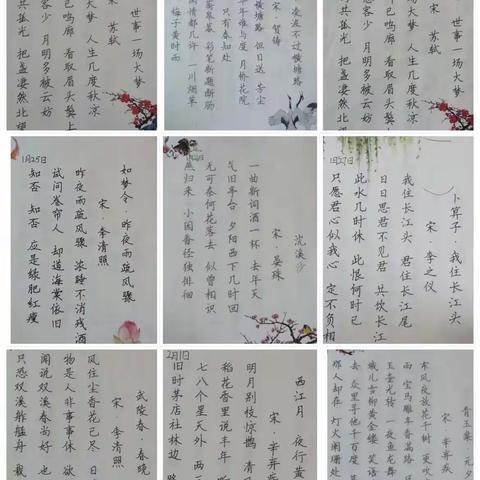 世事一场大梦
宋 · 苏轼
大梦 人生几度秋凉
已鸣廊 看取眉头鬓上
客少 月明多被云妨
共孤光 把盏凄然北望
凌波不过横塘路
宋 · 贺铸
横塘路 但目送 芳尘
年谁与度 月桥花院
只有春知处
皋暮 彩笔新题断肠
情都几许 一川烟草
梅子黄时雨
世事一场大梦
宋 · 苏轼
大梦 人生几度秋凉
已鸣廊 看取眉头鬓上
客少 月明多被云妨
共孤光 把盏凄然北望
1月25日
如梦令 · 昨夜雨疏风骤
宋 · 李清照
昨夜雨疏风骤 浓睡不消残酒
试问卷帘人 却道海棠依旧
知否 知否 应是绿肥红瘦
浣溪沙
宋 · 晏殊
一曲新词酒一杯 去年天
气旧亭台 夕阳西下几时回
无可奈何花落去 似曾相识
燕归来 小园香径独徘徊
1月27日
卜算子 · 我住长江头
宋 · 李之仪
我住长江头 君住长江尾
日日思君不见君 共饮长江
此水几时休 此恨何时已
只愿君心似我心 定不负相
武陵春 · 春晚
宋 · 李清照
风住尘香花已尽 日
物是人非事事休 欲
闻说双溪春尚好 也
只恐双溪舴艋舟 载
2月1日
西江月 · 夜行黄
宋 · 辛弃疾
明月别枝惊鹊 清
稻花香里说丰年
七八个星天外 两三
旧时茅店社林边 路
青玉案 · 元夕
宋 · 辛弃疾
东风夜放花千树 更吹
雨 宝马雕车香满路
玉壶光转 一夜鱼龙舞
蛾儿雪柳黄金缕 笑语
去 众里寻他千百度
那人却在 灯火阑珊处